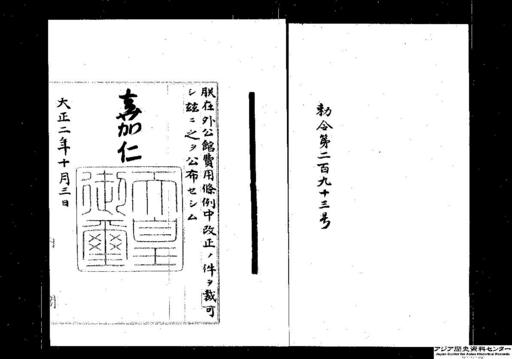 勅令第二百九十三号
朕在外公館費用條例中改正ノ件ヲ裁可
シ茲ニ之ヲ公布セシム
嘉仁
天皇
御璽
大正二年十月三日
アジア歴史資料センター
Japan Center for Asian Historical Records